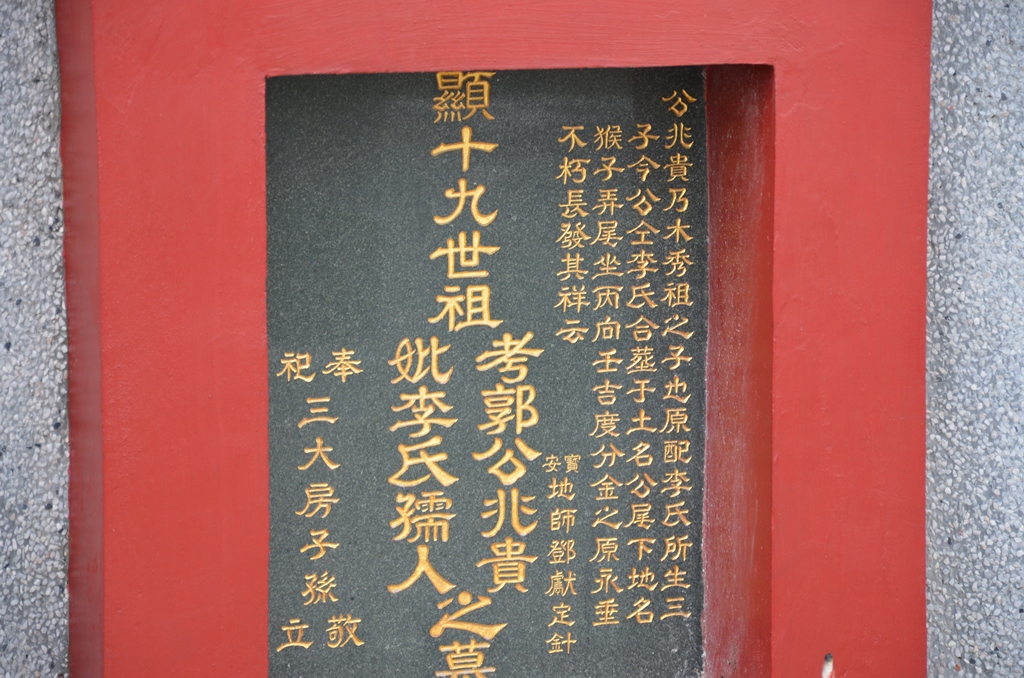 公兆貴乃木秀祖之子也原配李氏所生三
子今公仝李氏合塟于土名公尾下地名
猴子弄尾坐丙向壬吉度分金之原永垂
不朽長發其祥云
寶安地師鄧獻定針
顯十九世祖
考郭公兆貴
妣李氏孺人
之墓
奉祀三大房子孫敬立